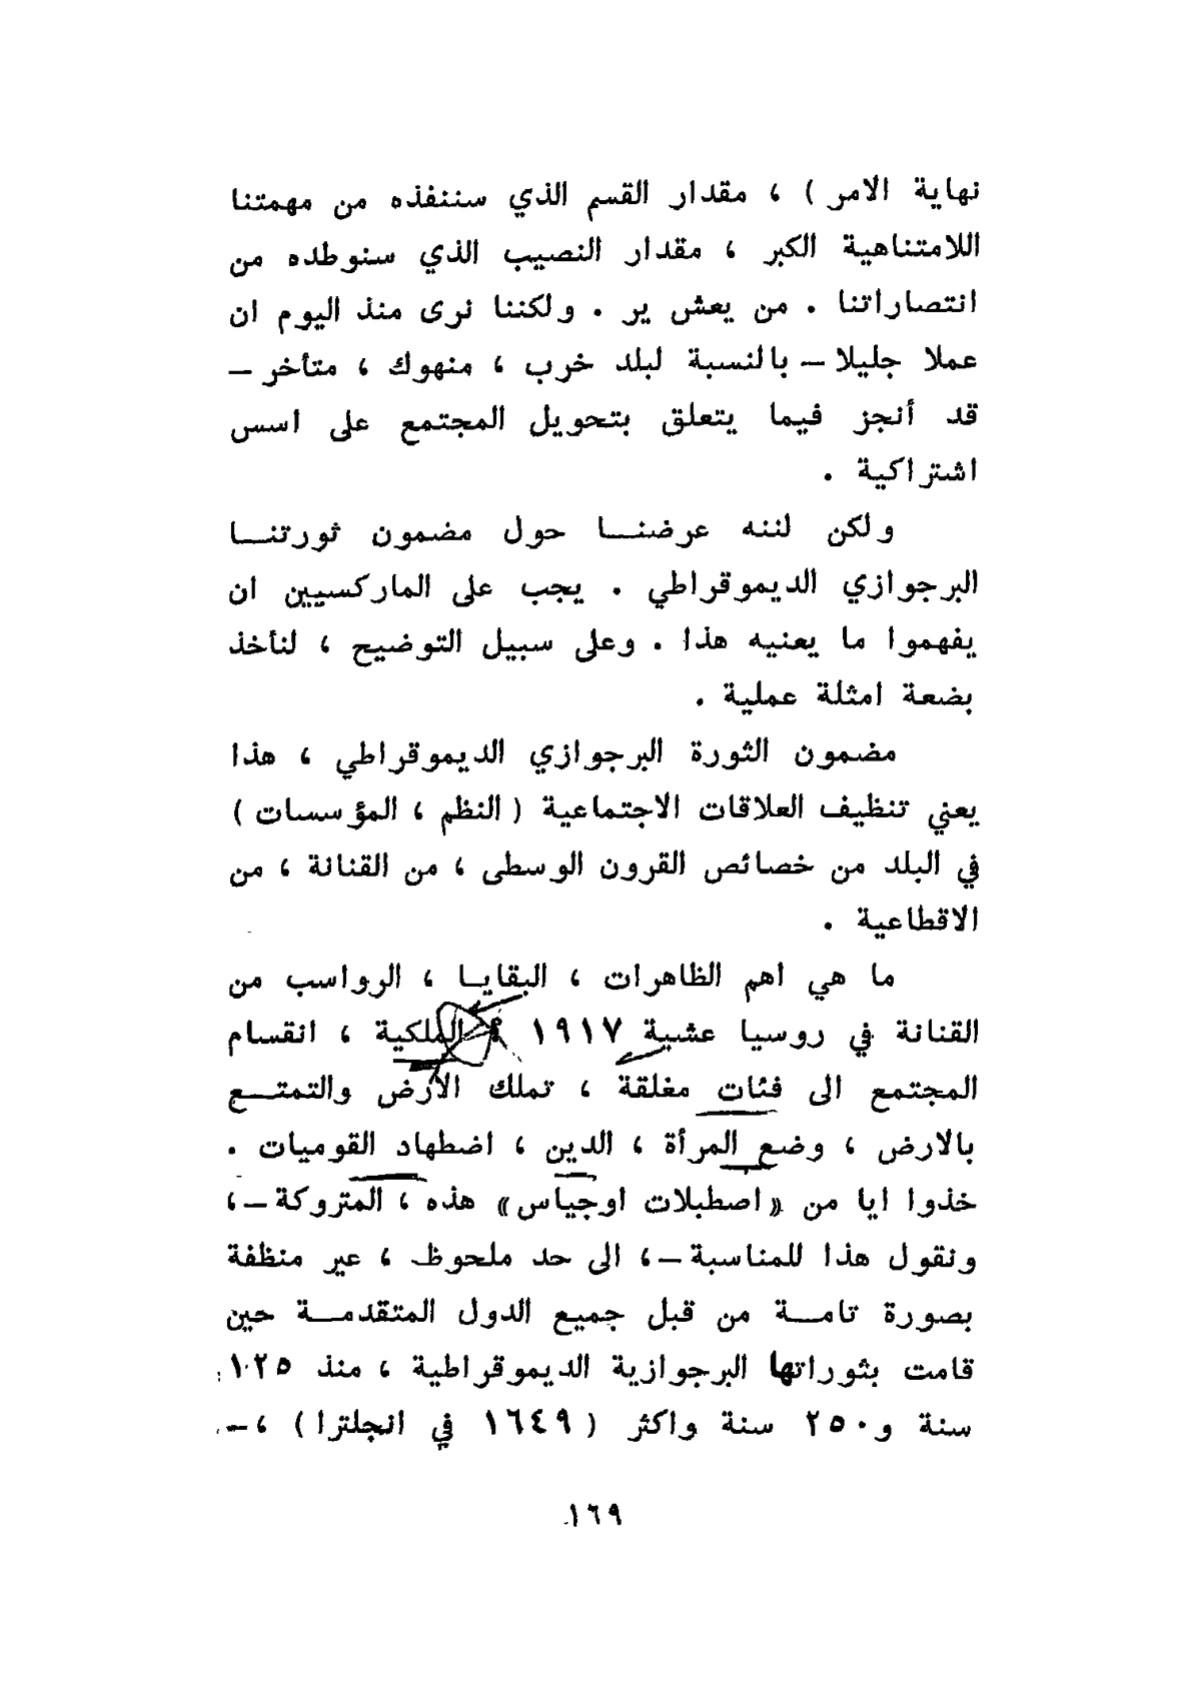 نهاية الامر ) ، مقدار القسم الذي سننفذه من مهمتنا
اللامتناهية الكبر ، مقدار النصيب الذي سنوطده من
انتصاراتنا . من يعش ير . ولكننا نرى منذ اليوم ان
عملا جليلا – بالنسبة لبلد خرب ، منهوك ، متأخر –
قد أنجز فيما يتعلق بتحويل المجتمع على اسس
اشتراكية .
ولكن لننه عرضنـا حول مضمون ثورتنـا
البرجوازي الديموقراطي . يجب على الماركسيين ان
يفهموا ما يعنيه هذا . وعلى سبيل التوضيح ، لنأخذ
بضعة امثلة عملية .
مضمون الثورة البرجوازي الديموقراطي ، هذا
يعني تنظيف العلاقات الاجتماعية ( النظم ، المؤسسات )
في البلد من خصائص القرون الوسطى ، من القنانة ، من
الاقطاعية .
ما هي اهم الظاهرات ، البقايـا ، الرواسب من
القنانة في روسيا عشية ١٩١٧ ؟ الملكية ، انقسام
المجتمع الى فئات مغلقة ، تملك الارض والتمتـع
بالارض ، وضع المرأة ، الدين ، اضطهاد القوميات .
خذوا ايا من «اصطبلات اوجياس» هذه ، المتروكة –،
ونقول هذا للمناسبة –، الى حد ملحوظ ، غير منظفة
بصورة تامـة من قبل جميع الدول المتقدمـة حين
قامت بثوراتها البرجوازية الديموقراطية ، منذ ١٠٢٥
سنة و٢٥٠ سنة واكثر ( ١٦٤٩ في انجلترا ) ،–
١٦٩